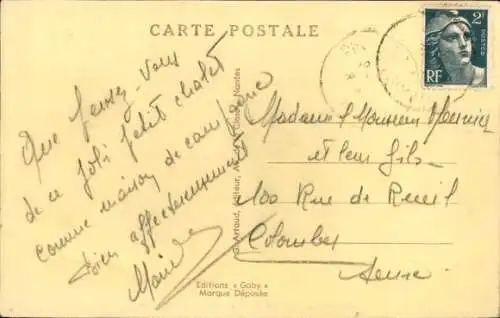 CARTE POSTALE
2F
POSTES
RF
Que pensez-vous
de ce joli petit chalet
comme maison de campagne
bien affectueusement
G. Artaud, Éditeur, Nantes
Madame & Monsieur
et leur fils
100 Rue de Rueil
Colombes
Seine
Editions « Gaby »
Marque Déposée